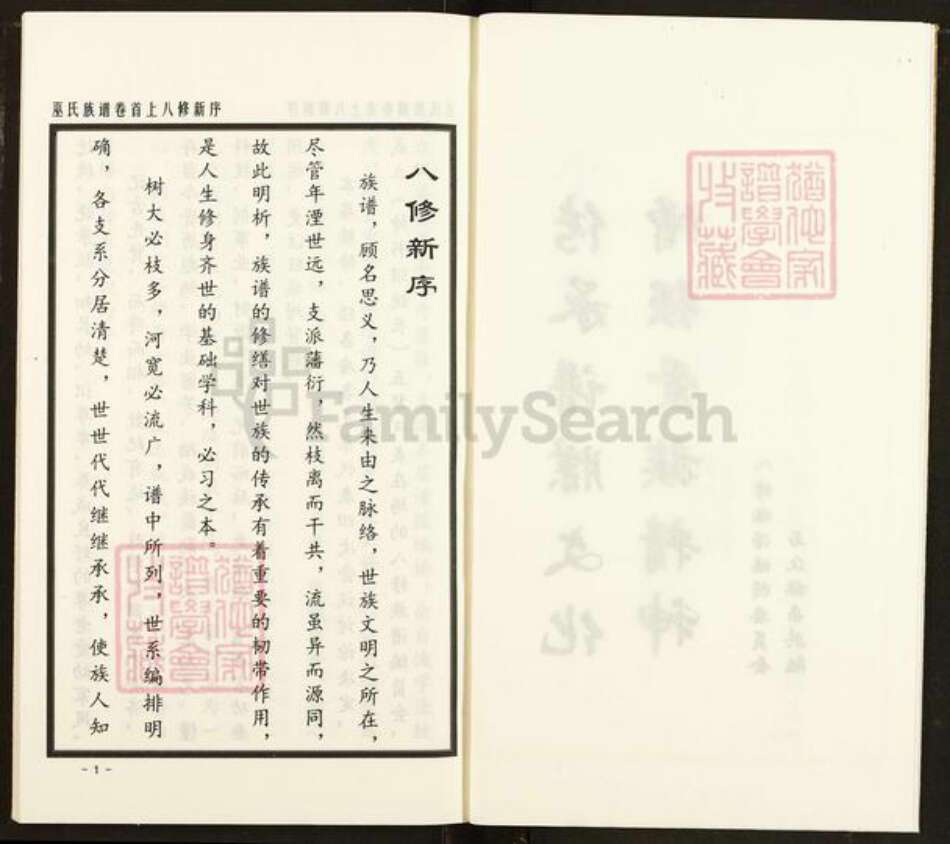 巫氏族谱卷首上八修新序
八修新序
族谱，顾名思义，乃人生来由之脉络，世族文明之所在，
尽管年湮世远，支派藩衍，然枝离而干共，流虽异而源同，
故此明析，族谱的修缮对世族的传承有着重要的韧带作用，
是人生修身齐世的基础学科，必习之本。
树大必枝多，河宽必流广，谱中所列，世系编排明
确，各支系分居清楚，世世代代继继承承，使族人知
- 1 -
FamilySearch
猶他家
譜學會
收藏
猶他家
譜學會
收藏